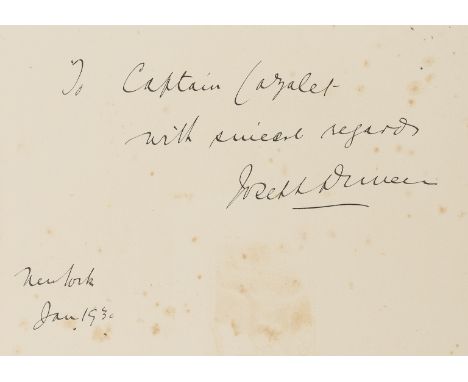 To Captain Cazalet
with sincere regards
Joseph Duveen
New York
Jan 1930